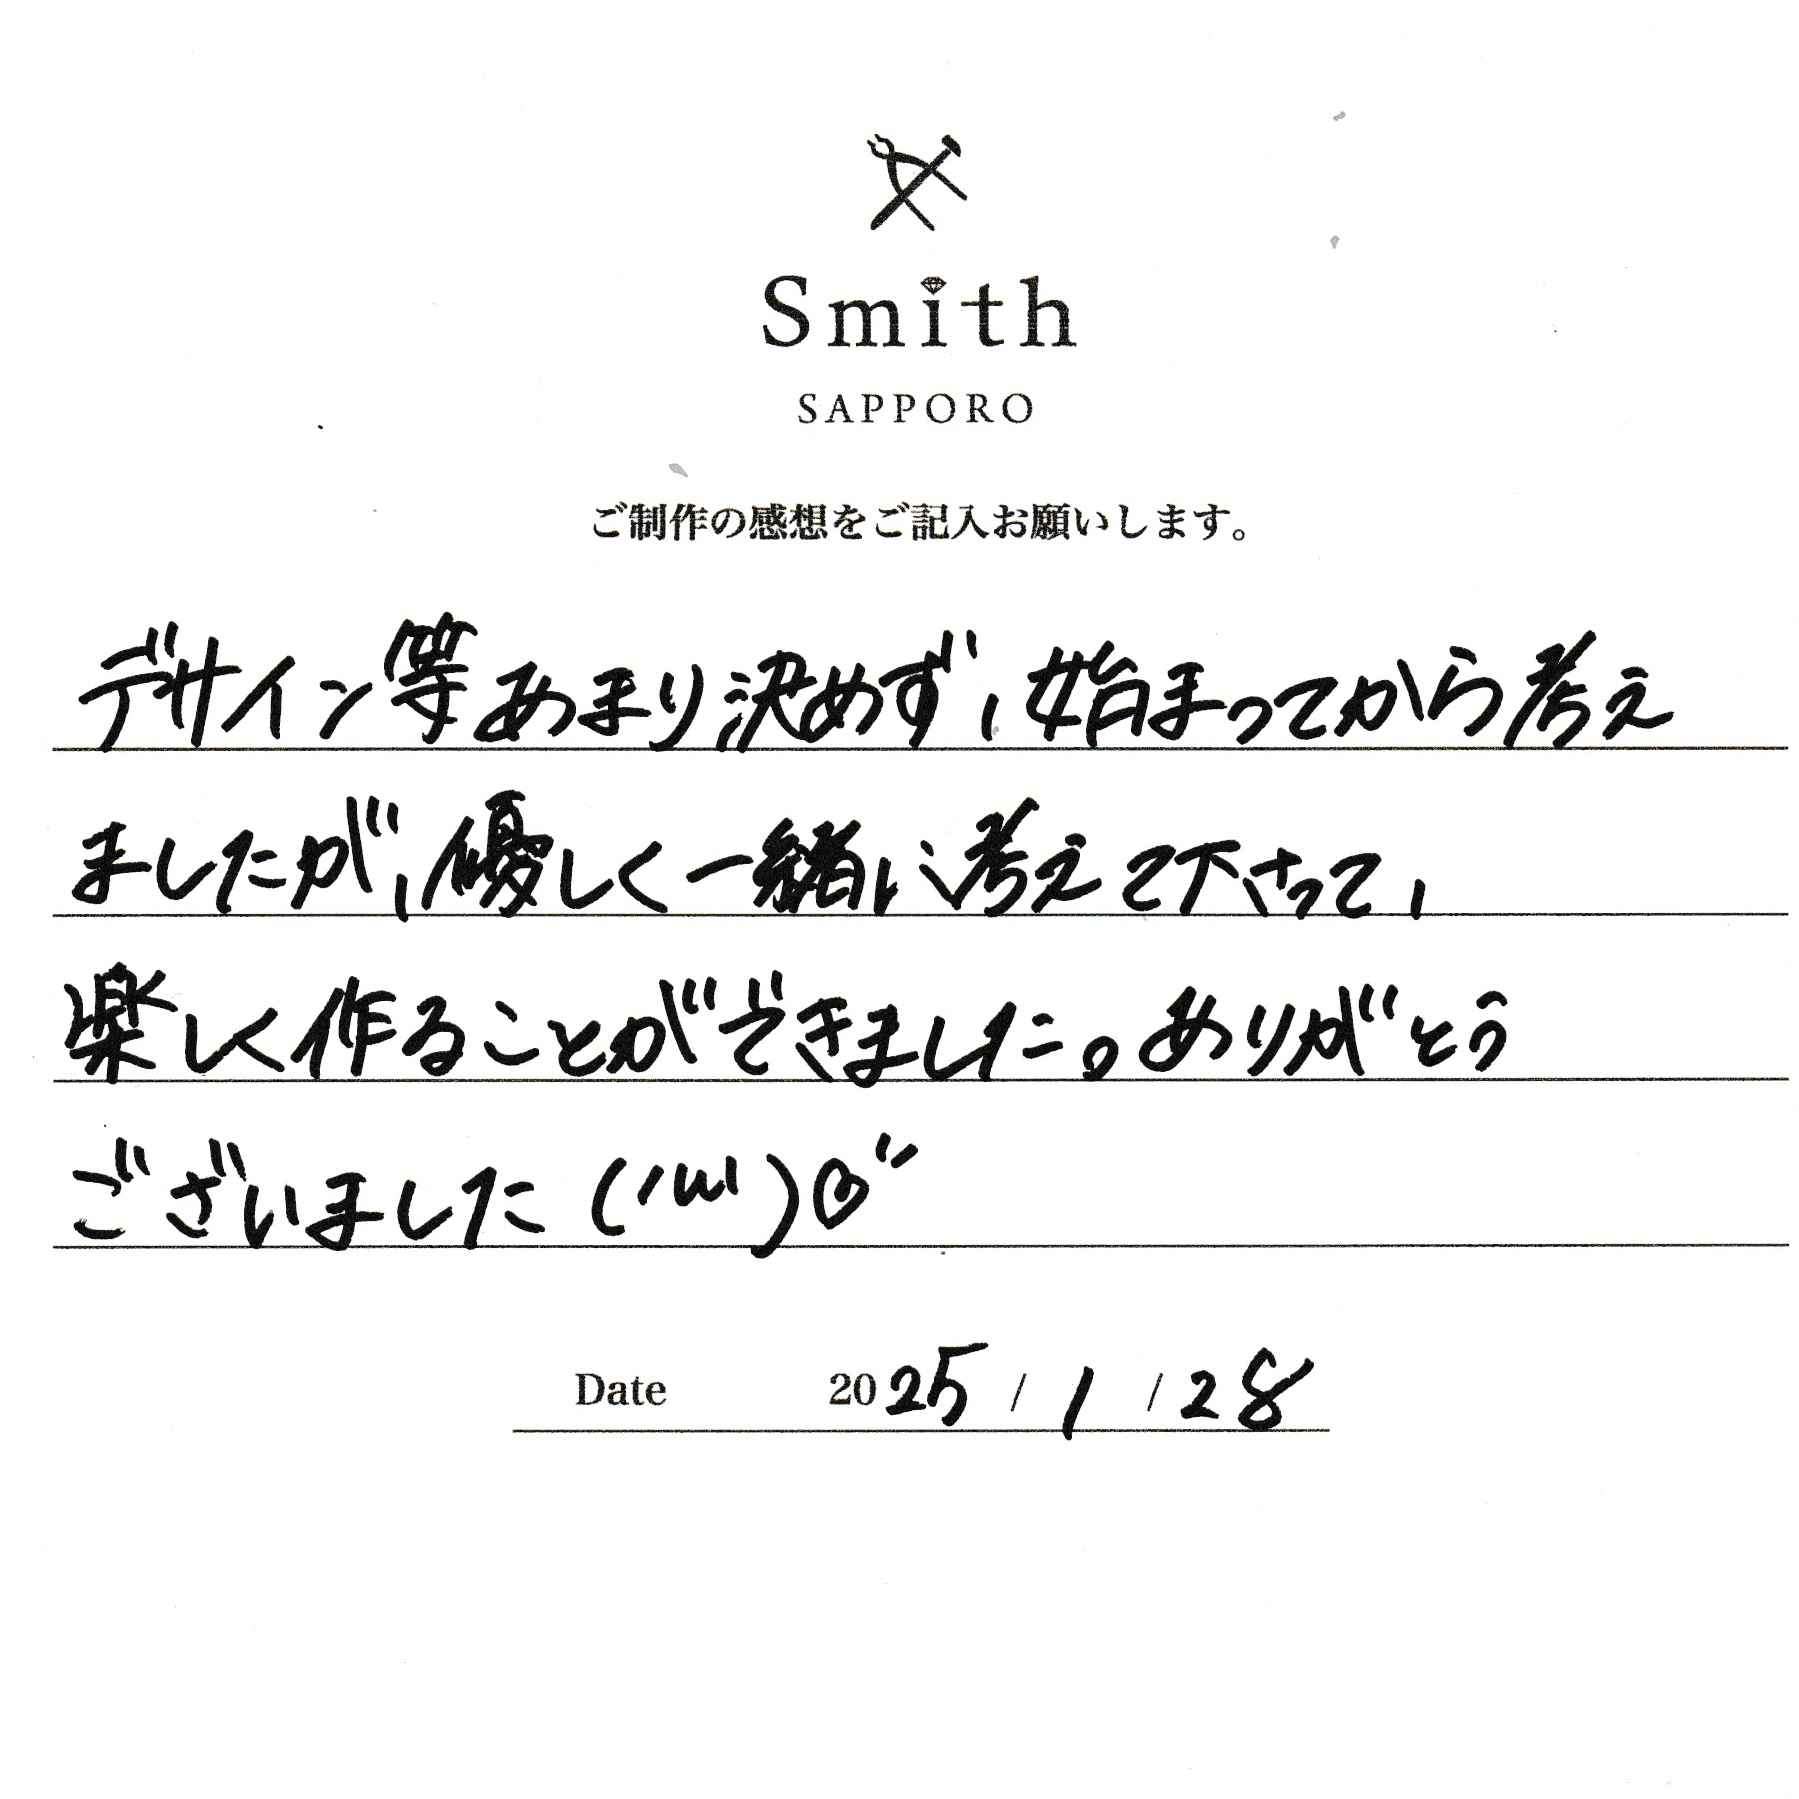 Smith
SAPPORO
ご制作の感想をご記入お願いします。
デサイン等あまり決めず、始まってから考え
ましたが、優しく一緒に考えて下さって、
楽しく作ることができました。ありがとう
ございました ('ω')
Date 2025 / 1 / 28